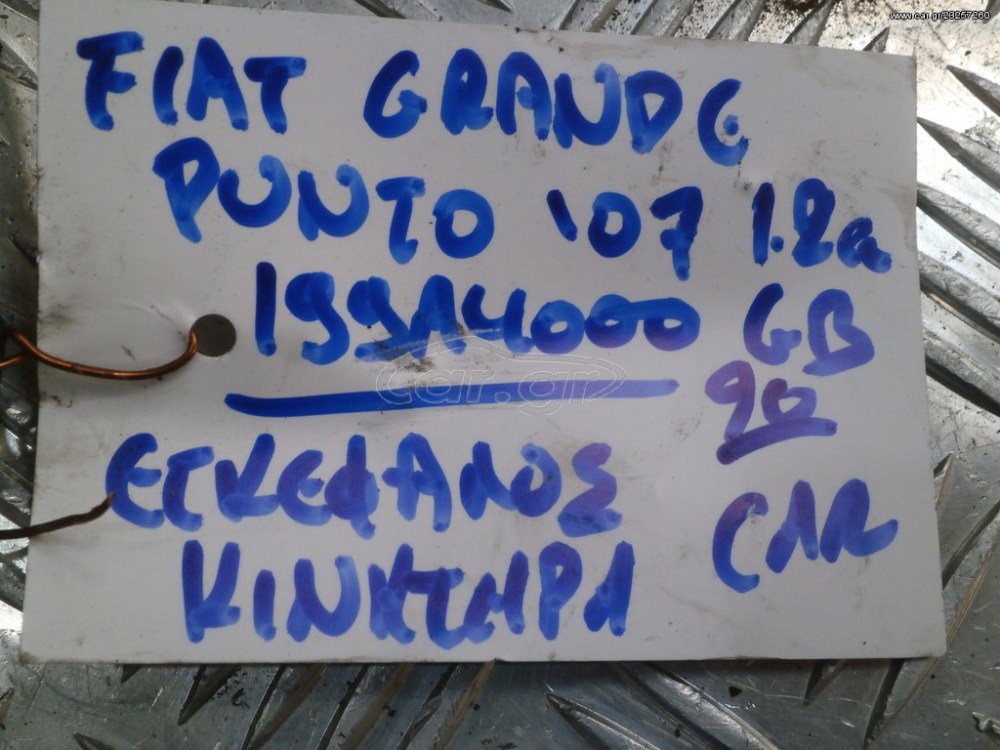 www.car.gr/23257280
FIAT GRANDE
PUNTO '07 1.2a
199A4000 GB
90
car.gr
ΕΓΚΕΦΑΛΟΣ
ΚΙΝΗΤΗΡΑ
CAR